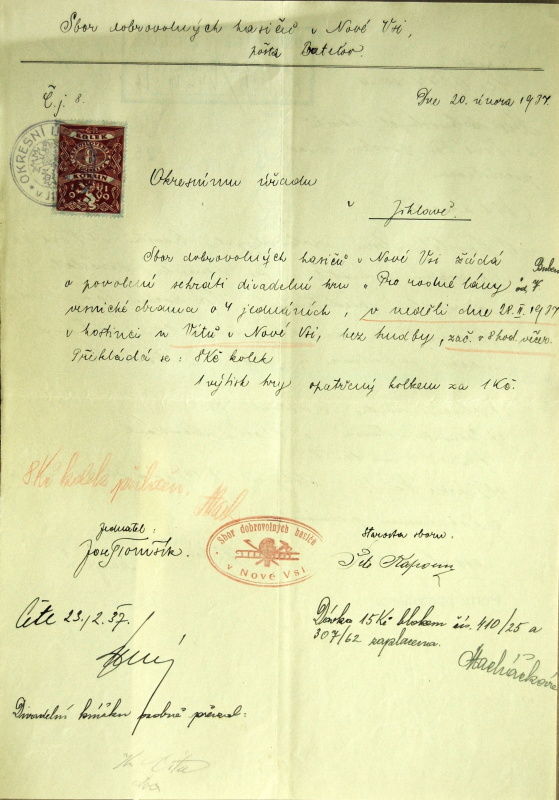 Sbor dobrovolných hasičů v Nové Vsi,
pošta Batelov.
Č.j. 8.
Dne 20. února 1937.
OKRESNÍ Ú
KOLEK
8
KORUN
Okresnímu úřadu
v
Jihlavě.
Sbor dobrovolných hasičů v Nové Vsi žádá
o povolení sehráti divadelní hru „Pro rodné lány" od F
vesnické drama o 4 jednáních, v neděli dne 28. II. 1937
v hostinci u Vítů v Nové Vsi, bez hudby, zač. v 8 hod. večer.
Předkládá se: 8 Kč kolek
1 výtisk hry opatřený kolkem za 1 Kč.
8 Kč kolek
Jednatel:
Starosta sboru:
Sbor dobrovolných hasičů
v Nové Vsi
23./2. 37.
Dávka 15 Kč blokem čís. 410/25 a
307/62 zaplacena.
Macháčková
Divadelní knížku osobně převzal: